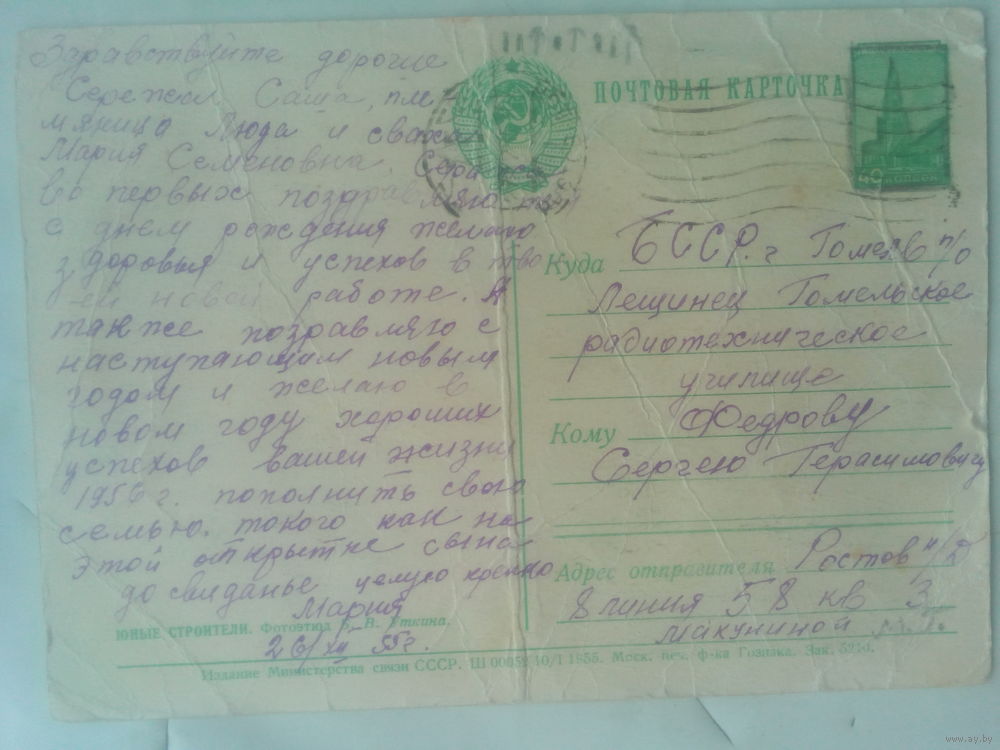 Здравствуйте дорогие
Сережа Саша, пле-
мяница Люда и сваха
Мария Семеновна. Сережа
во первых поздравляю тебя
с днем рождения желаю
здоровья и успехов в тво
ей новой работе. А
также поздравляю с
наступающим новым
годом и желаю в
новом году хороших
успехов вашей жизни
1956 г. пополнить свою
семью. такого как на
этой открытке сына
до свиданье целую крепко
Мария
26/XII 55г.
ЮНЫЕ СТРОИТЕЛИ. Фотоэтюд В. Уткина.
Издание Министерства связи СССР. Ш 00059 10/I 1955. Моск. печ. ф-ка Гознака. Зак.
ПОЧТОВАЯ КАРТОЧКА
40 КОПЕЕК
Куда БССР. г Гомель п/о
Лещинец Гомельское
радиотехническое
училище
Кому Федрову
Сергею Герасимовичу
Адрес отправителя Ростов н/Д
8 линия 58 кв 3
Макуниной
www.ay.by